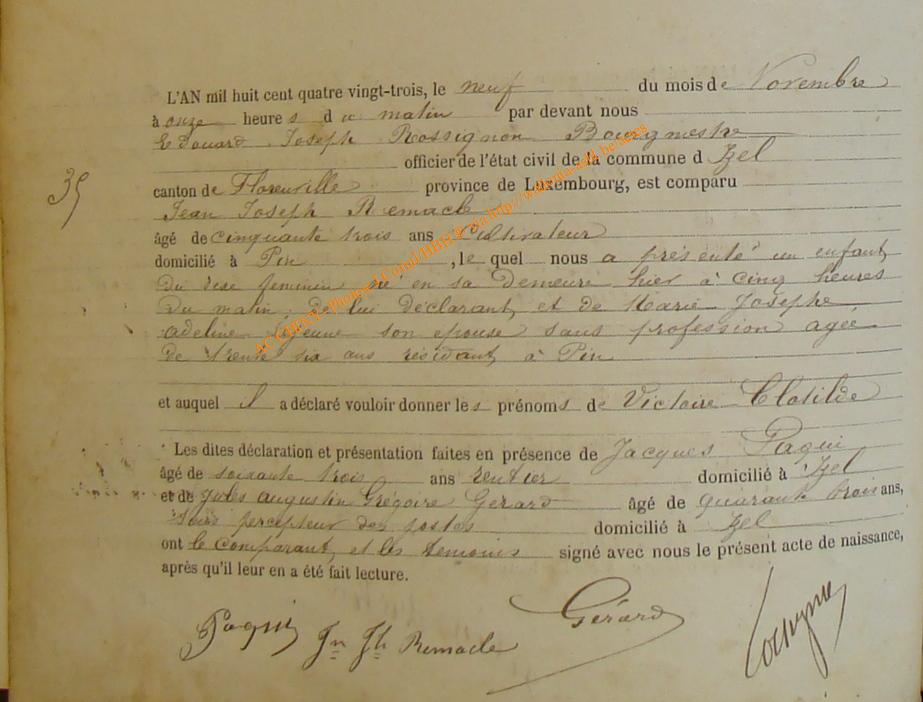 L'AN mil huit cent quatre vingt-trois, le neuf du mois de Novembre
à onze heures du matin par devant nous
Edouard Joseph Rossignon Bourgmestre
officier de l'état civil de la commune d Izel
35
canton de Florenville province de Luxembourg, est comparu
Jean Joseph Remacle
âgé de cinquante trois ans Cultivateur
domicilié à Pin , le quel nous a présenté un enfant
du sexe feminin né en sa demeure hier à cinq heures
du matin, de lui déclarant, et de Marie Josephe
adeline Lejeune son epouse sans profession agée
de trente six ans résidant à Pin
et auquel il a déclaré vouloir donner les prénoms de Victoire Clotilde
Les dites déclaration et présentation faites en présence de Jacques Paqui
âgé de soixante trois ans rentier domicilié à Izel
et de Jules augustin Grégoire Gerard âgé de quarante trois ans,
percepteur des postes domicilié à Izel
ont le comparant, et les temoins signé avec nous le présent acte de naissance,
après qu'il leur en a été fait lecture.
Paqui Jn Jh Remacle Gérard